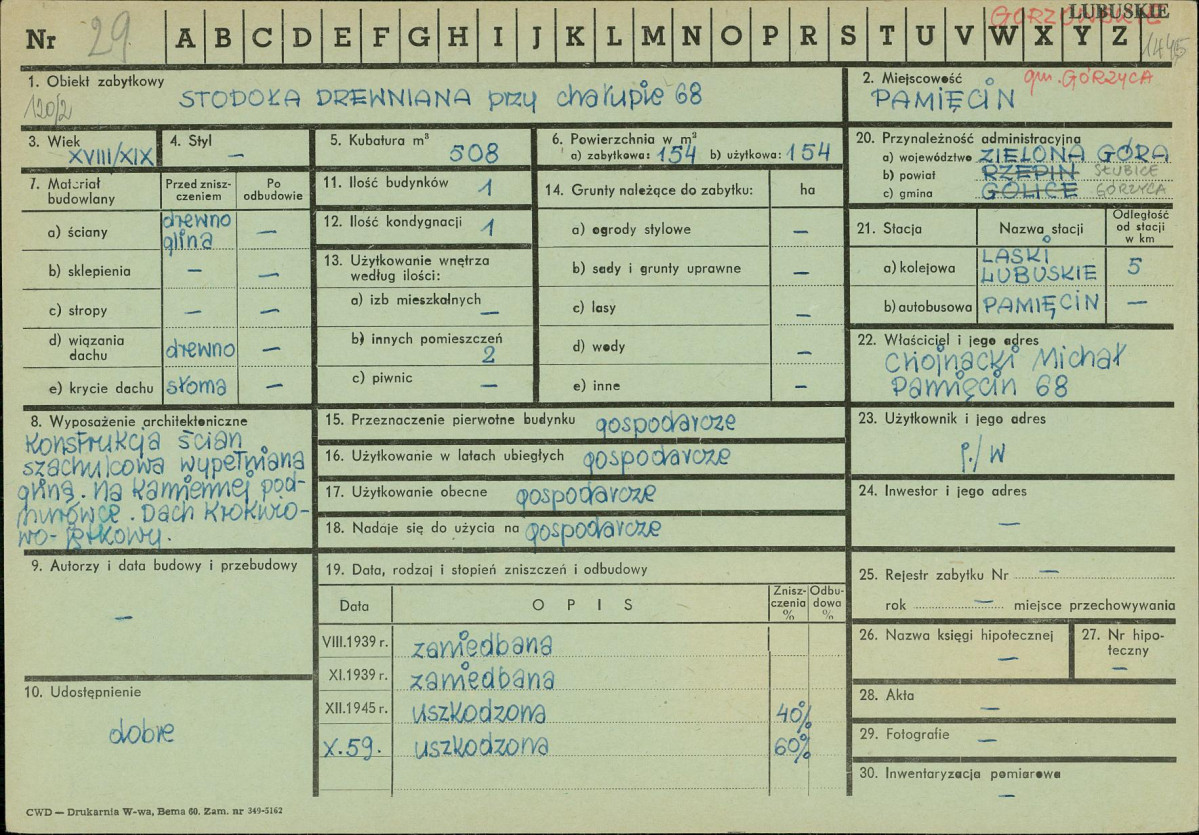 GORZOWSKIE LUBUSKIE
Nr 29 A B C D E F G H I J K L M N O P R S T U V W X Y Z 1445
1. Obiekt zabytkowy
120/2
STODOŁA DREWNIANA przy chałupie 68
2. Miejscowość gm. GÓRZYCA
PAMIĘCIN
3. Wiek
XVIII/XIX
4. Styl
—
5. Kubatura m³
508
6. Powierzchnia w m²
a) zabytkowa: 154 b) użytkowa: 154
20. Przynależność administracyjna
a) województwo ZIELONA GÓRA
b) powiat RZEPIN SŁUBICE
c) gmina GOLICE GÓRZYCA
7. Materiał budowlany
Przed zniszczeniem
Po odbudowie
a) ściany drewno glina —
b) sklepienia — —
c) stropy — —
d) wiązania dachu drewno —
e) krycie dachu słoma —
11. Ilość budynków 1
12. Ilość kondygnacji 1
13. Użytkowanie wnętrza według ilości:
a) izb mieszkalnych —
b) innych pomieszczeń 2
c) piwnic —
14. Grunty należące do zabytku: ha
a) ogrody stylowe —
b) sady i grunty uprawne —
c) lasy —
d) wody —
e) inne —
21. Stacja Nazwa stacji Odległość od stacji w km
a) kolejowa LASKI LUBUSKIE 5
b) autobusowa PAMIĘCIN —
22. Właściciel i jego adres
Chojnacki Michał
Pamięcin 68
8. Wyposażenie architektoniczne
Konstrukcja ścian
szachulcowa wypełniana
gliną. Na kamiennej pod-
murówce. Dach krokwio-
wo-jętkowy.
15. Przeznaczenie pierwotne budynku gospodarcze
16. Użytkowanie w latach ubiegłych gospodarcze
17. Użytkowanie obecne gospodarcze
18. Nadaje się do użycia na gospodarcze
23. Użytkownik i jego adres
j./w
24. Inwestor i jego adres
—
9. Autorzy i data budowy i przebudowy
—
10. Udostępnienie
dobre
19. Data, rodzaj i stopień zniszczeń i odbudowy
Data OPIS Zniszczenia % Odbudowa %
VIII.1939 r. zaniedbana
XI.1939 r. zaniedbana
XII.1945 r. uszkodzona 40%
X.59. uszkodzona 60%
25. Rejestr zabytku Nr —
rok — miejsce przechowywania
26. Nazwa księgi hipotecznej
—
27. Nr hipoteczny
—
28. Akta
—
29. Fotografie —
30. Inwentaryzacja pomiarowa
—
CWD — Drukarnia W-wa, Bema 60. Zam. nr 349-5162